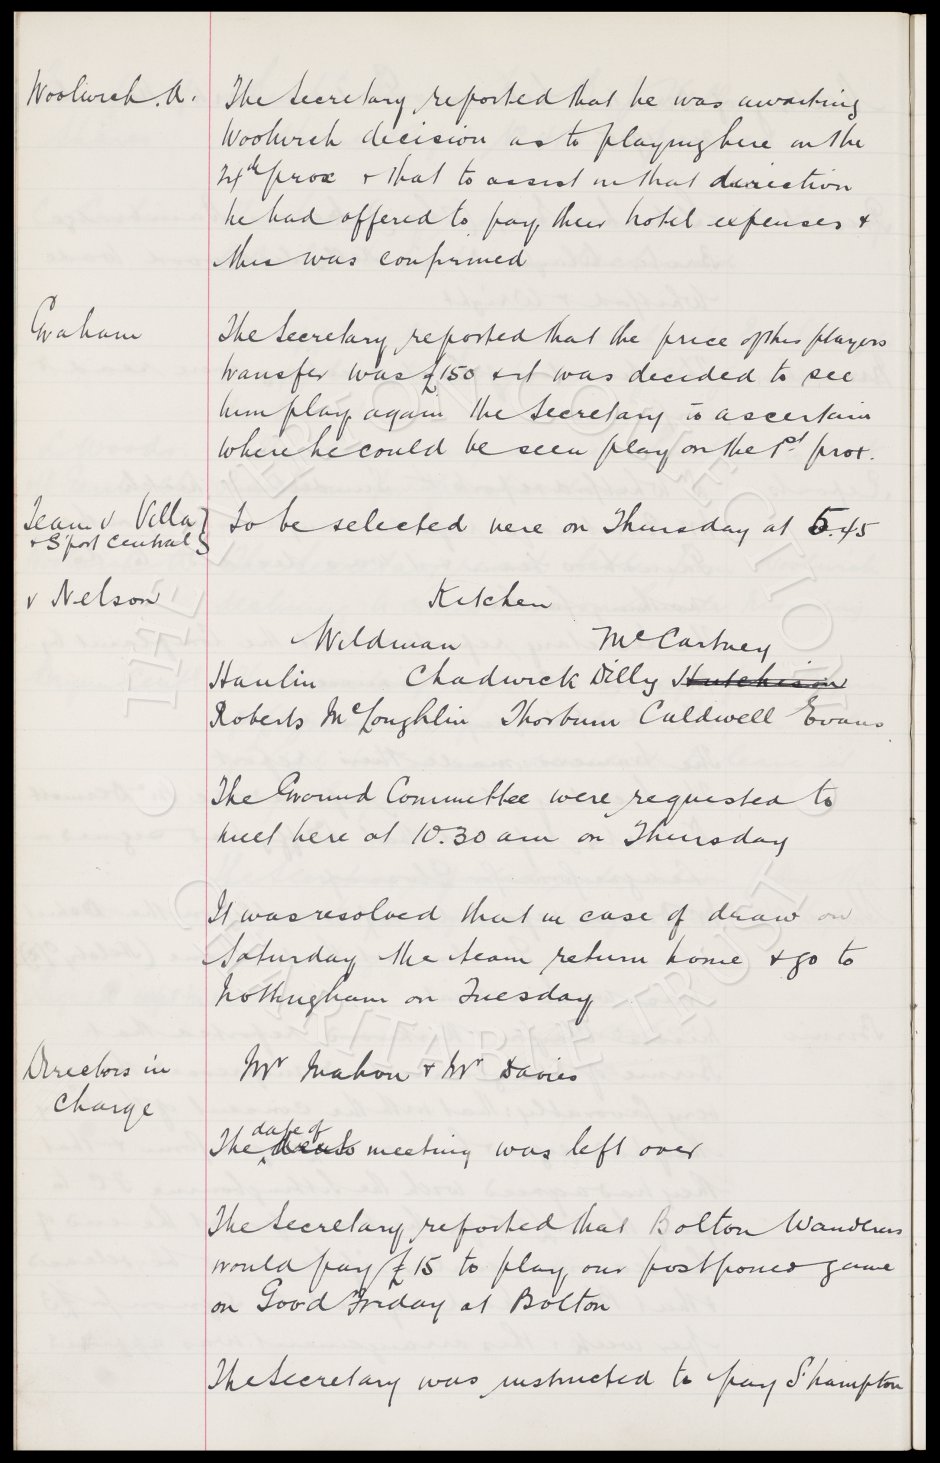 Woolwich. A.
The Secretary reported that he was awaiting
Woolwich decision as to playing here on the
24th prox & that to assist in that direction
he had offered to pay their hotel expenses &
this was confirmed
Graham
The Secretary reported that the price of this players
transfer was £150 & it was decided to see
him play again the Secretary to ascertain
where he could be seen play on the 1st prox.
Team v Villa
& S'port Central
To be selected here on Thursday at 5.45
v Nelson
Kitchen
Wildman McCartney
Hanlin Chadwick Dilly Hutchison
Roberts McLoughlin Thorburn Caldwell Evans
The Ground Committee were requested to
meet here at 10.30 am on Thursday
It was resolved that in case of draw on
Saturday the team return home & go to
Nottingham on Tuesday
Directors in
Charge
Mr Mahon & Mr Davies
date of
The meeting was left over
The Secretary reported that Bolton Wanderers
would pay £15 to play our postponed game
on Good Friday at Bolton
The Secretary was instructed to pay S'hampton
THE EVERTON COLLECTION
CHARITABLE TRUST